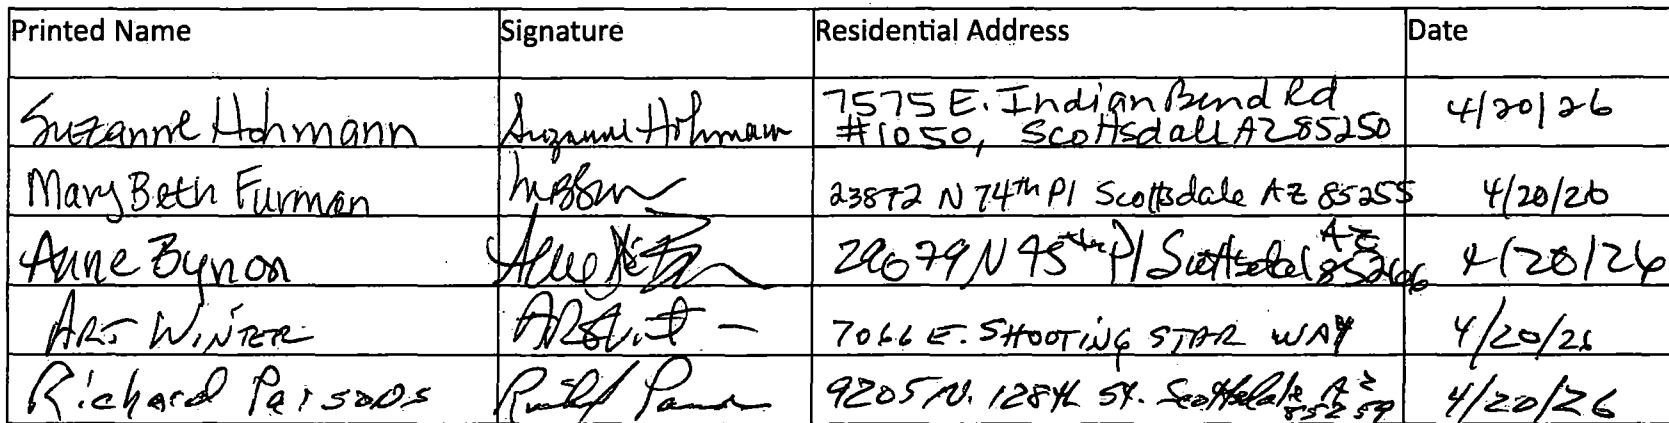 Printed Name Signature Residential Address Date
Suzanne Hohmann Suzanne Hohmann 7575 E. Indian Bend Rd
#1050, Scottsdale AZ 85250 4/20/26
Mary Beth Furman 23872 N 74th Pl Scottsdale AZ 85255 4/20/26
Anne Bynon 29079 N 45th Pl Scottsdale AZ
85266 4/20/26
Art Winter 7066 E. SHOOTING STAR WAY 4/20/26
Richard Parsons 9205 N. 128th St. Scottsdale AZ
85259 4/20/26